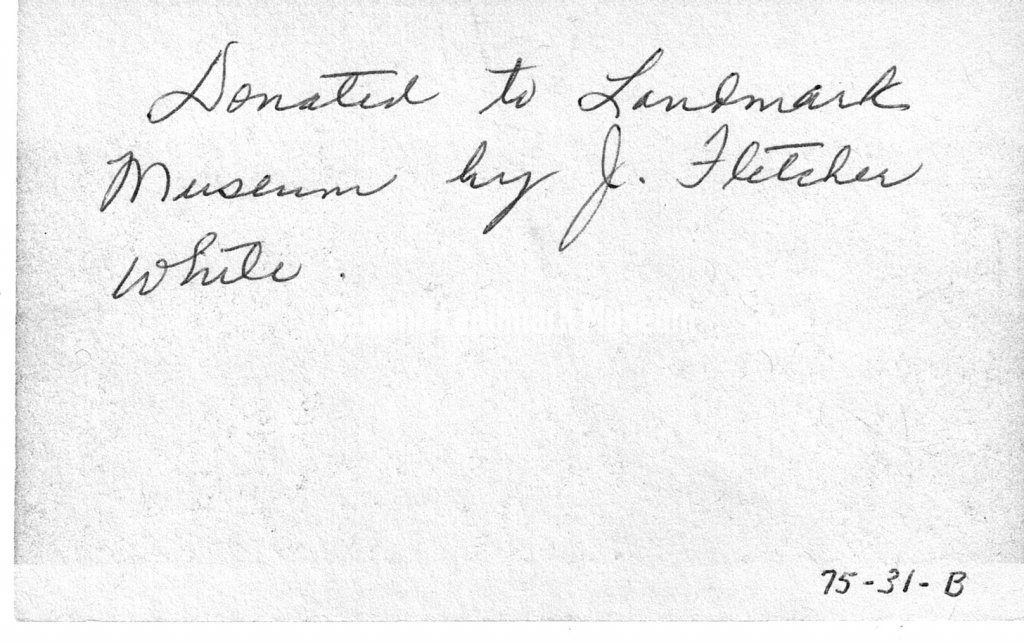 Donated to Landmark
Museum by J. Fletcher
White.
Landmark Museum
75-31-B